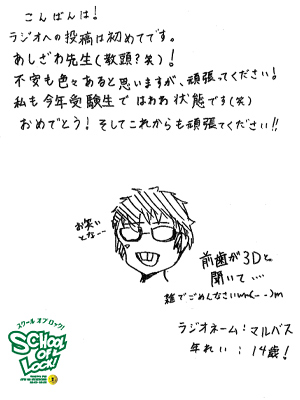 こんばんは!
ラジオへの投稿は初めてです。
あしざわ先生(教頭?笑)!
不安も色々あると思いますが、頑張ってください!
私も今年受験生で はわわ 状態です(笑)
おめでとう! そしてこれからも頑張てください!!
お笑い
とな…
前歯が3Dと
聞いて…
雑でごめんなさいwm(--)m
ラジオネーム:マルバス
年れい:14歳!
スクール オブ ロック!
SCHOOL
OF
LOCK!